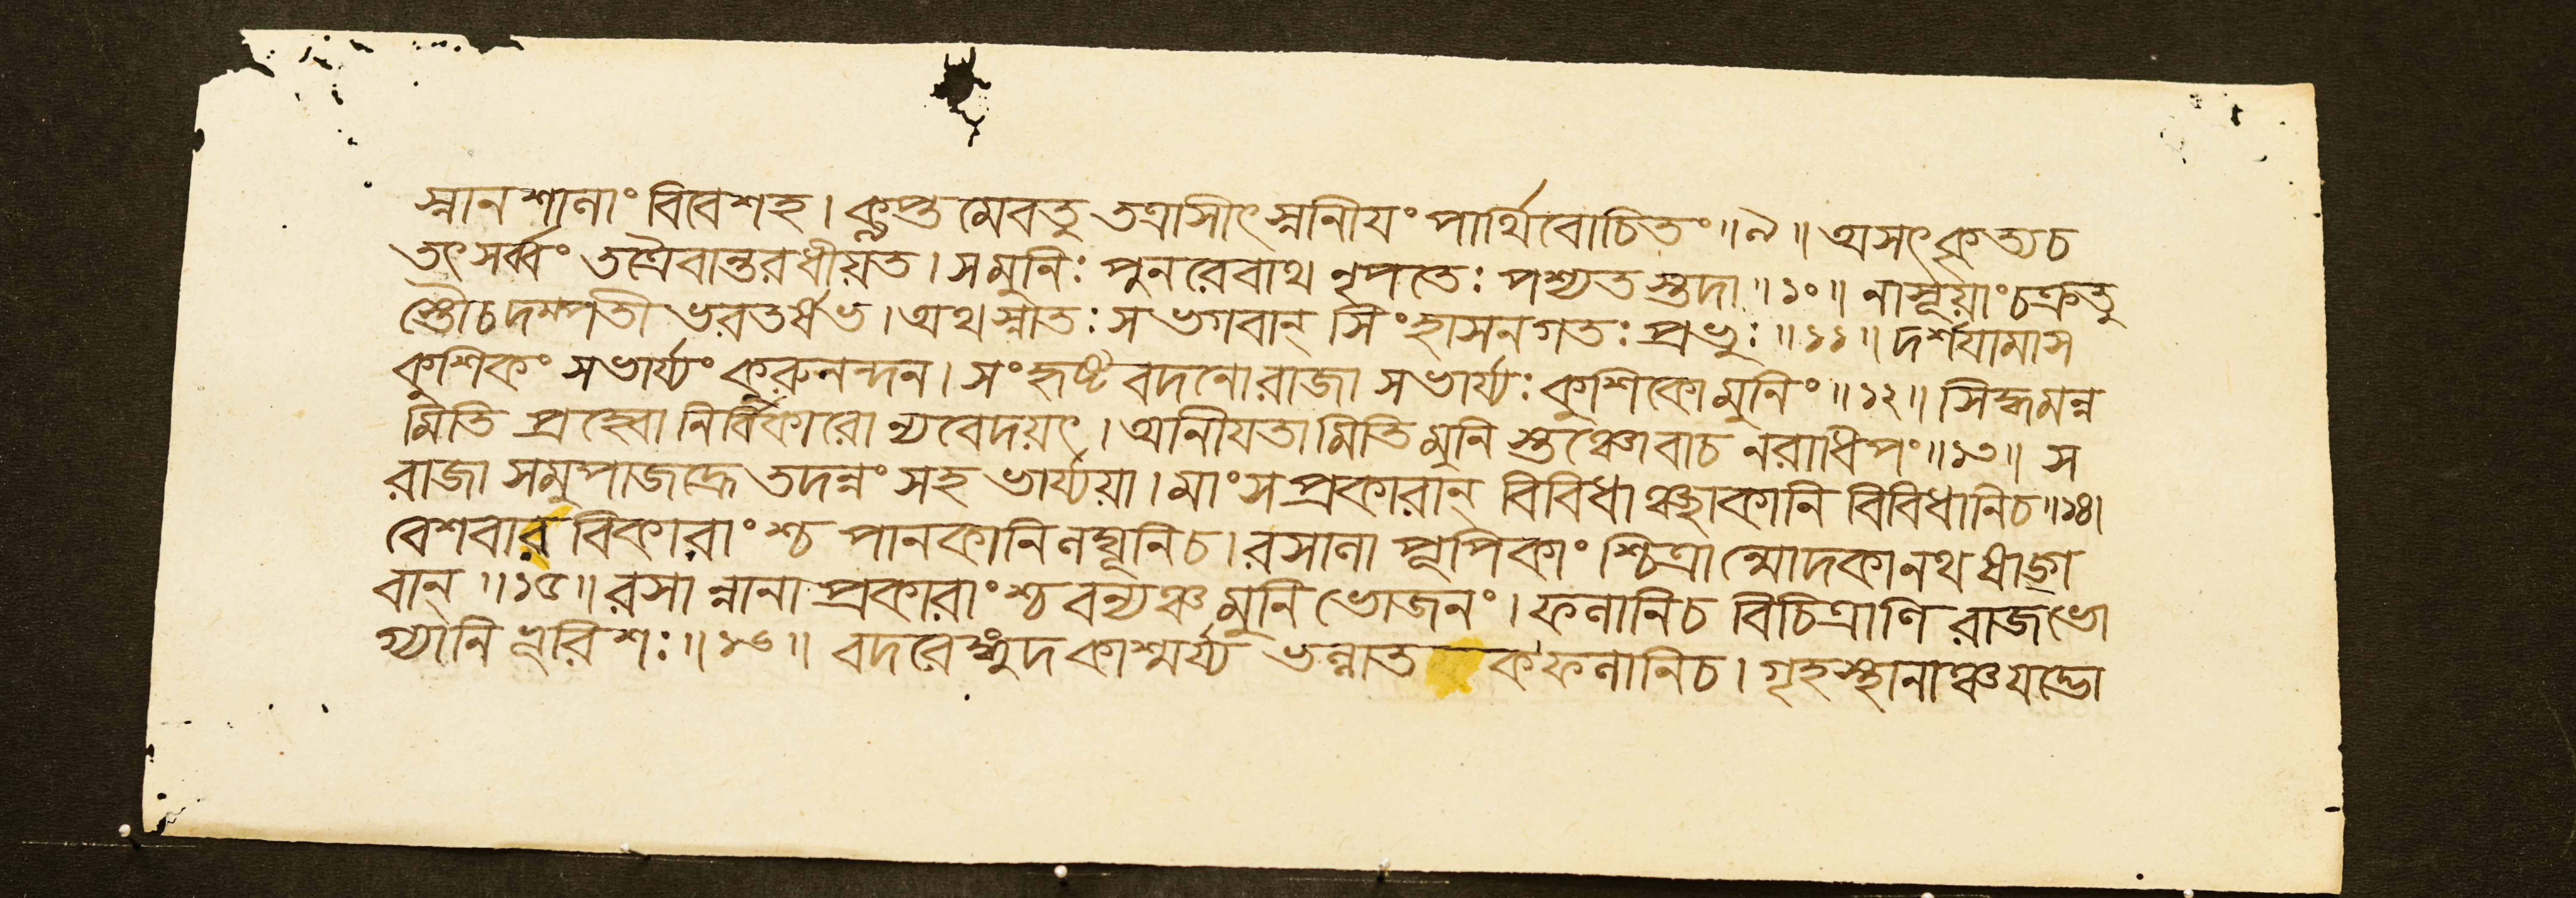 স্নানশালাং বিবেশহ। কৢপ্তমেবতু তত্রাসীৎ স্নানীযং পার্থিবোচিতং॥৯॥ অসৎকৃত্যচ
তৎসর্ব্বং তত্রৈবান্তরধীয়ত। সমুনিঃ পুনরেবাথ নৃপতেঃ পশ্যতস্তদা॥১০॥ নাসূয়াংচক্রতু
স্তৌচদম্পতী ভরতর্ষভ। অথস্নাতঃ সভগবান্ সিংহাসনগতঃ প্রভুঃ॥১১॥ দর্শযামাস
কুশিকং সভার্য্যং কুরুনন্দন। সংহৃষ্টবদনোরাজা সভার্য্যঃ কুশিকোমুনিং॥১২॥ সিদ্ধমন্ন
মিতি প্রহ্বো নির্ব্বিকারো ন্যবেদয়ৎ। আনীযতামিতিমুনি স্তঞ্চোবাচ নরাধিপং॥১৩॥ স
রাজা সমুপাজহ্রে তদন্নং সহ ভার্য্যয়া। মাংসপ্রকারান্ বিবিধাঞ্ছাকানি বিবিধানিচ॥১৪।
বেশবার বিকারাংশ্চ পানকানি লঘূনিচ। রসালা পূপিকাংশ্চিত্রান্মোদকানথ ষাড়্গ
বান্॥১৫॥ রসান্নানা প্রকারাংশ্চ বন্যঞ্চ মুনিভোজনং। ফলানিচ বিচিত্রাণি রাজভো
গ্যানি ভূরিশঃ॥১৬॥ বদরেঙ্গুদকাশ্মর্য্য ভল্লাতকফলানিচ। গৃহস্থানাঞ্চযদ্ভো